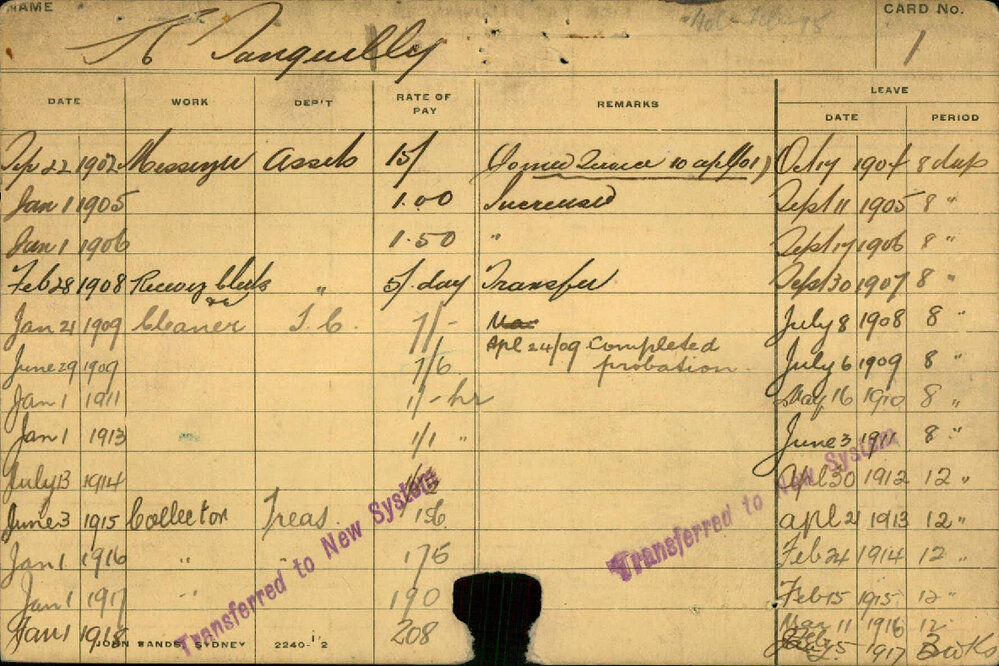 NAME
CARD No.
Tanquelley
1
DATE WORK DEP'T RATE OF PAY REMARKS LEAVE
DATE PERIOD
Sep 22 1902 Messenger Assets 15/ 10 apl/01) Oct 17 1904 8 days
Jan 1 1905 1.00 Increased Sept 11 1905 8 "
Jan 1 1906 1.50 " Sept 17 1906 8 "
Feb 28 1908 " 5/. day Transfer Sept 30 1907 8 "
Jan 21 1909 Cleaner T.C. 7/- July 8 1908 8 "
Apl 24/09 Completed probation.
June 29 1909 7/6 July 6 1909 8 "
Jan 1 1911 1/- hr May 16 1910 8 "
Jan 1 1913 1/1 " June 3 1911 8 "
July 13 1914 Apl 30 1912 12 "
June 3 1915 Collector Treas. 156 apl 21 1913 12 "
Jan 1 1916 " " 175 Feb 24 1914 12 "
Jan 1 1917 " 190 Feb 15 1915 12 "
Jan 1 1918 208 Mar 11 1916 12
1917
Transferred to New System
Transferred to New System
JOHN SANDS, SYDNEY 2240-